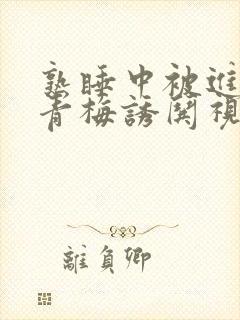 熟睡中被進
青梅誘関視
離負卿